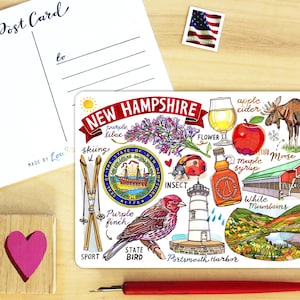 Post Card
to
MADE BY
NEW HAMPSHIRE
purple
lilac
FLOWER
apple
cider
Moose
skiing
INSECT
maple
syrup
White
Mountains
Purple
finch
SPORT
STATE
BIRD
Portsmouth Harbor